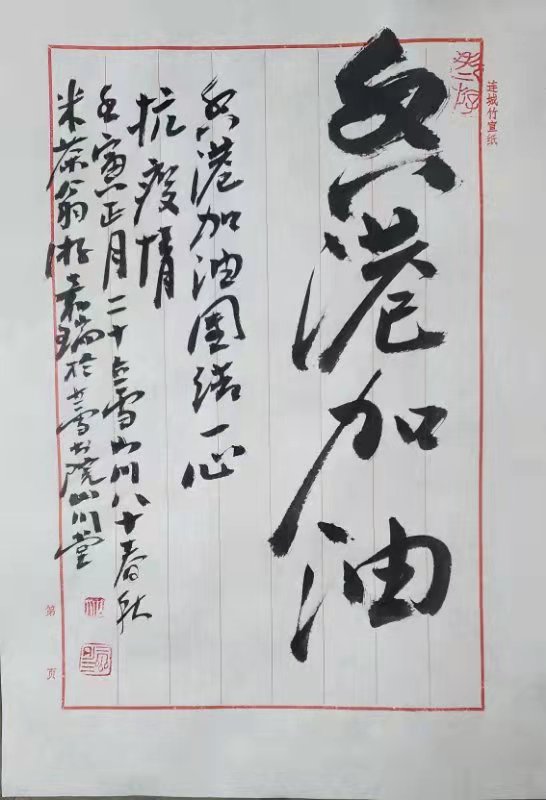 连城竹宣纸
香港加油
香港加油团结一心
抗疫情
壬寅正月二十雪山川八十春秋
米茶翁游嘉瑞於雪书院山川堂
第 页